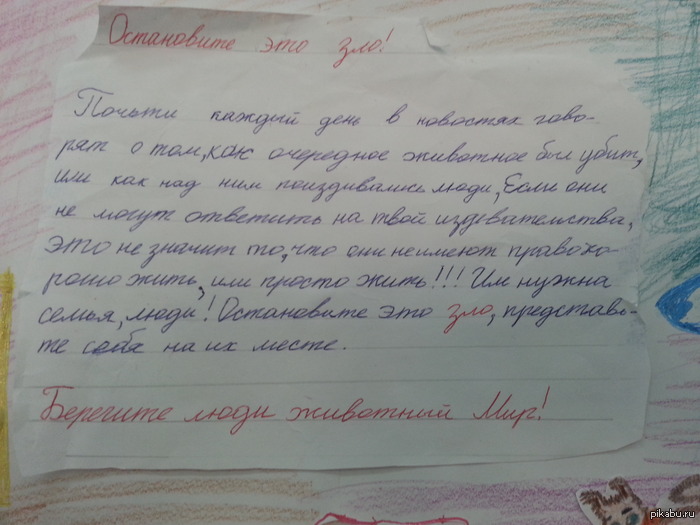 Остановите это зло!
Почьти каждый день в новостях гово-
рят о том, как очередное животное был убит,
или как над ним поиздивались люди, Если они
не могут ответить на твои издевательства,
это не значит то, что они неимеют право хо-
рошо жить, или просто жить!!! Им нужна
семья, люди! Остановите это зло, представь-
те себя на их месте.
Берегите люди животный Мир!
pikabu.ru